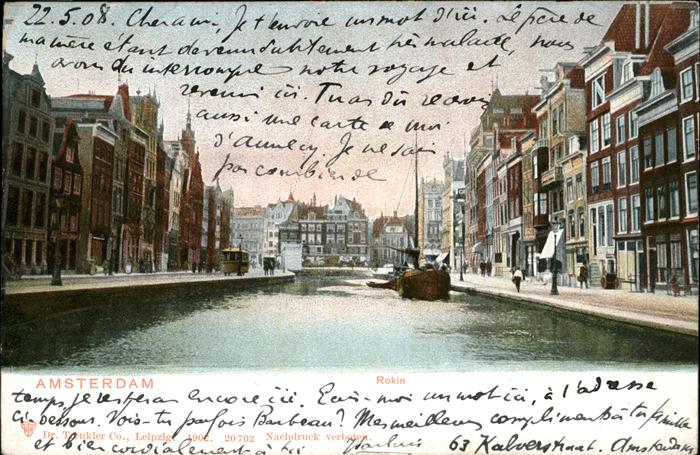 22.5.08. Cher ami, Je t'envoie un mot d'ici. Le père de
ma mère étant devenu subitement très malade, nous
avons du interrompre notre voyage et
revenir ici. Tu as dû recevoir
aussi une carte de moi
d'Annecy. Je ne sais
pas combien de
AMSTERDAM
Rokin
temps je resterai encore ici. Ecris-moi un mot ici, à l'adresse
ci-dessous. Vois-tu parfois Barbeau? Mes meilleurs compliments à ta famille
Dr. Trenkler Co., Leipzig. 1902. 20702 Nachdruck verboten.
et bien cordialement à toi 63 Kalverstraat. Amsterdam